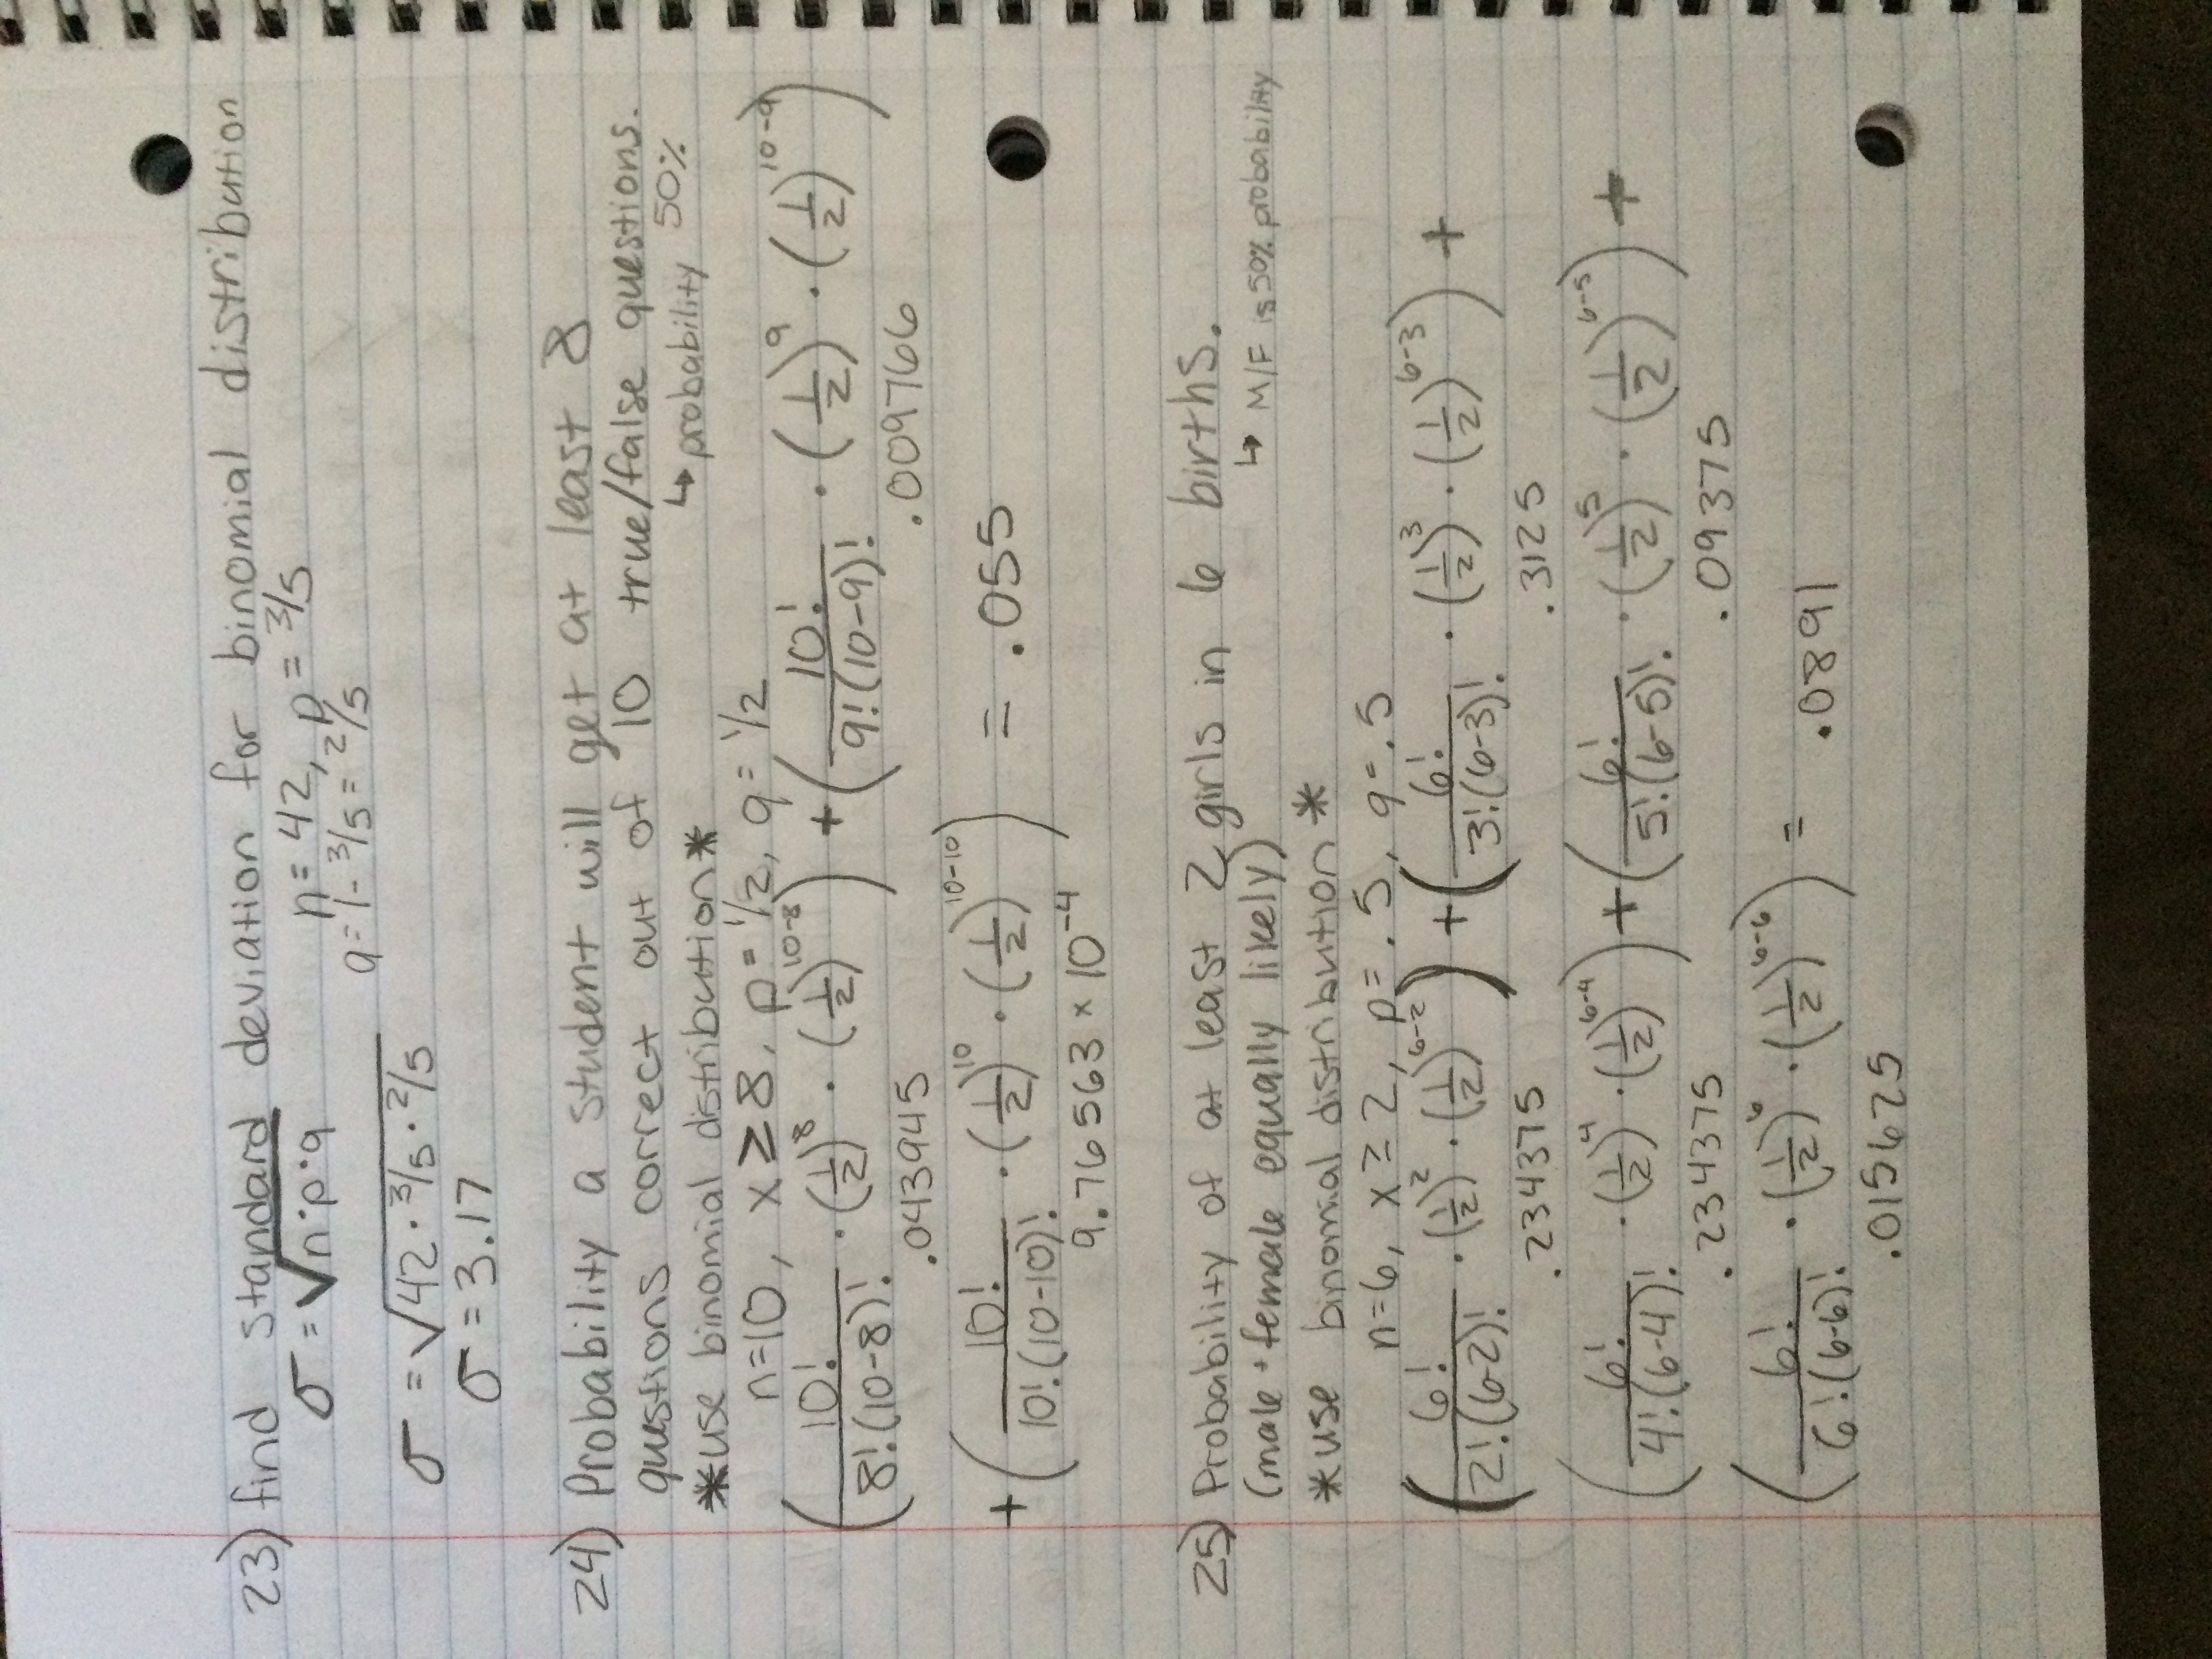 23) find standard deviation for binomial distribution
σ = √n·p·q n = 42, p = 3/5
q = 1 - 3/5 = 2/5
σ = √42 · 3/5 · 2/5
σ = 3.17
24) Probability a student will get at least 8
questions correct out of 10 true/false questions.
*use binomial distribution* ↳ probability 50%
n=10, x ≥ 8, p = 1/2, q = 1/2
(10!/8!(10-8)! · (1/2)^8 · (1/2)^10-8) + (10!/9!(10-9)! · (1/2)^9 · (1/2)^10-9)
.043945 .009766
+ (10!/10!(10-10)! · (1/2)^10 · (1/2)^10-10) = .055
9.76563 × 10^-4
25) Probability of at least 2 girls in 6 births.
(male + female equally likely) ↳ M/F is 50% probability
*use binomial distribution *
n=6, x ≥ 2, p = .5, q = .5
(6!/2!(6-2)! · (1/2)^2 · (1/2)^6-2) + (6!/3!(6-3)! · (1/2)^3 · (1/2)^6-3) +
.234375 .3125
(6!/4!(6-4)! · (1/2)^4 · (1/2)^6-4) + (6!/5!(6-5)! · (1/2)^5 · (1/2)^6-5) +
.234375 .09375
(6!/6!(6-6)! · (1/2)^6 · (1/2)^6-6) = .0891
.015625